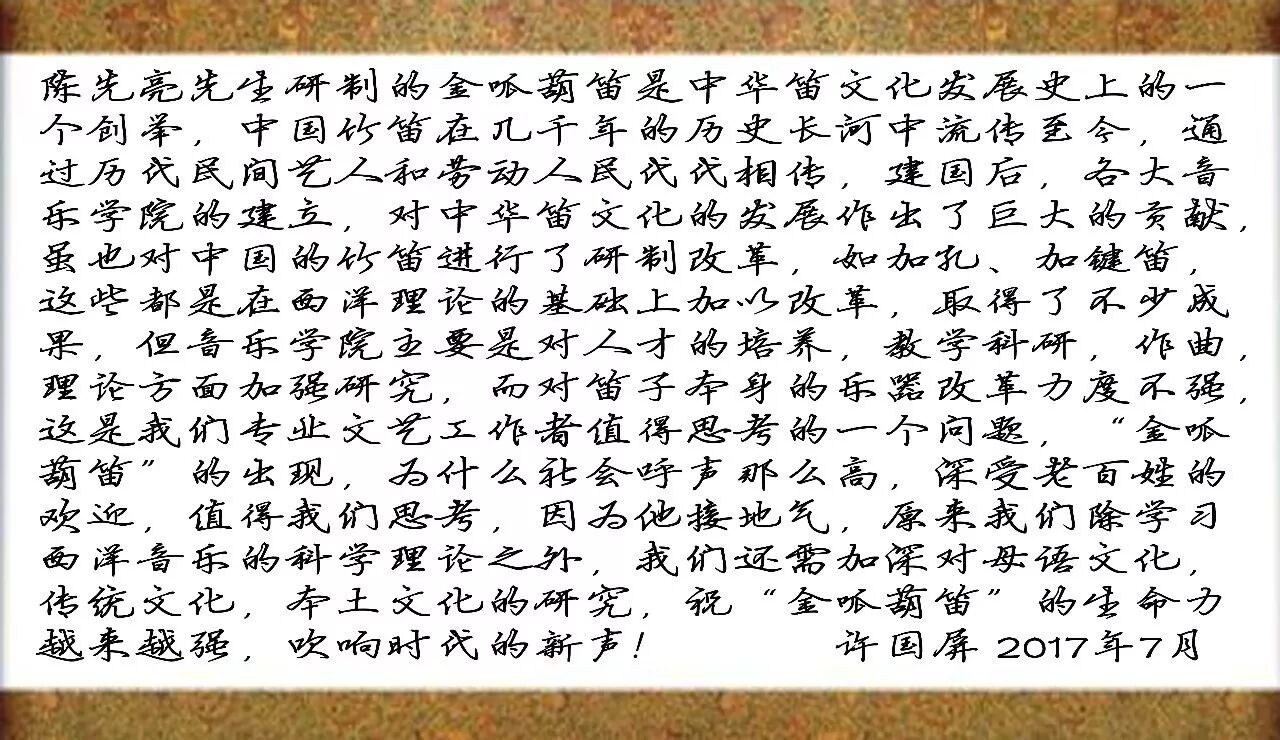 陈先亮先生研制的金呱葫笛是中华笛文化发展史上的一
个创举，中国竹笛在几千年的历史长河中流传至今，通
过历代民间艺人和劳动人民代代相传，建国后，各大音
乐学院的建立，对中华笛文化的发展作出了巨大的贡献，
虽也对中国的竹笛进行了研制改革，如加孔、加键笛，
这些都是在西洋理论的基础上加以改革，取得了不少成
果，但音乐学院主要是对人才的培养，教学科研，作曲，
理论方面加强研究，而对笛子本身的乐器改革力度不强，
这是我们专业文艺工作者值得思考的一个问题，“金呱
葫笛”的出现，为什么社会呼声那么高，深受老百姓的
欢迎，值得我们思考，因为他接地气，原来我们除学习
西洋音乐的科学理论之外，我们还需加深对母语文化，
传统文化，本土文化的研究，祝“金呱葫笛”的生命力
越来越强，吹响时代的新声！ 许国屏 2017年7月